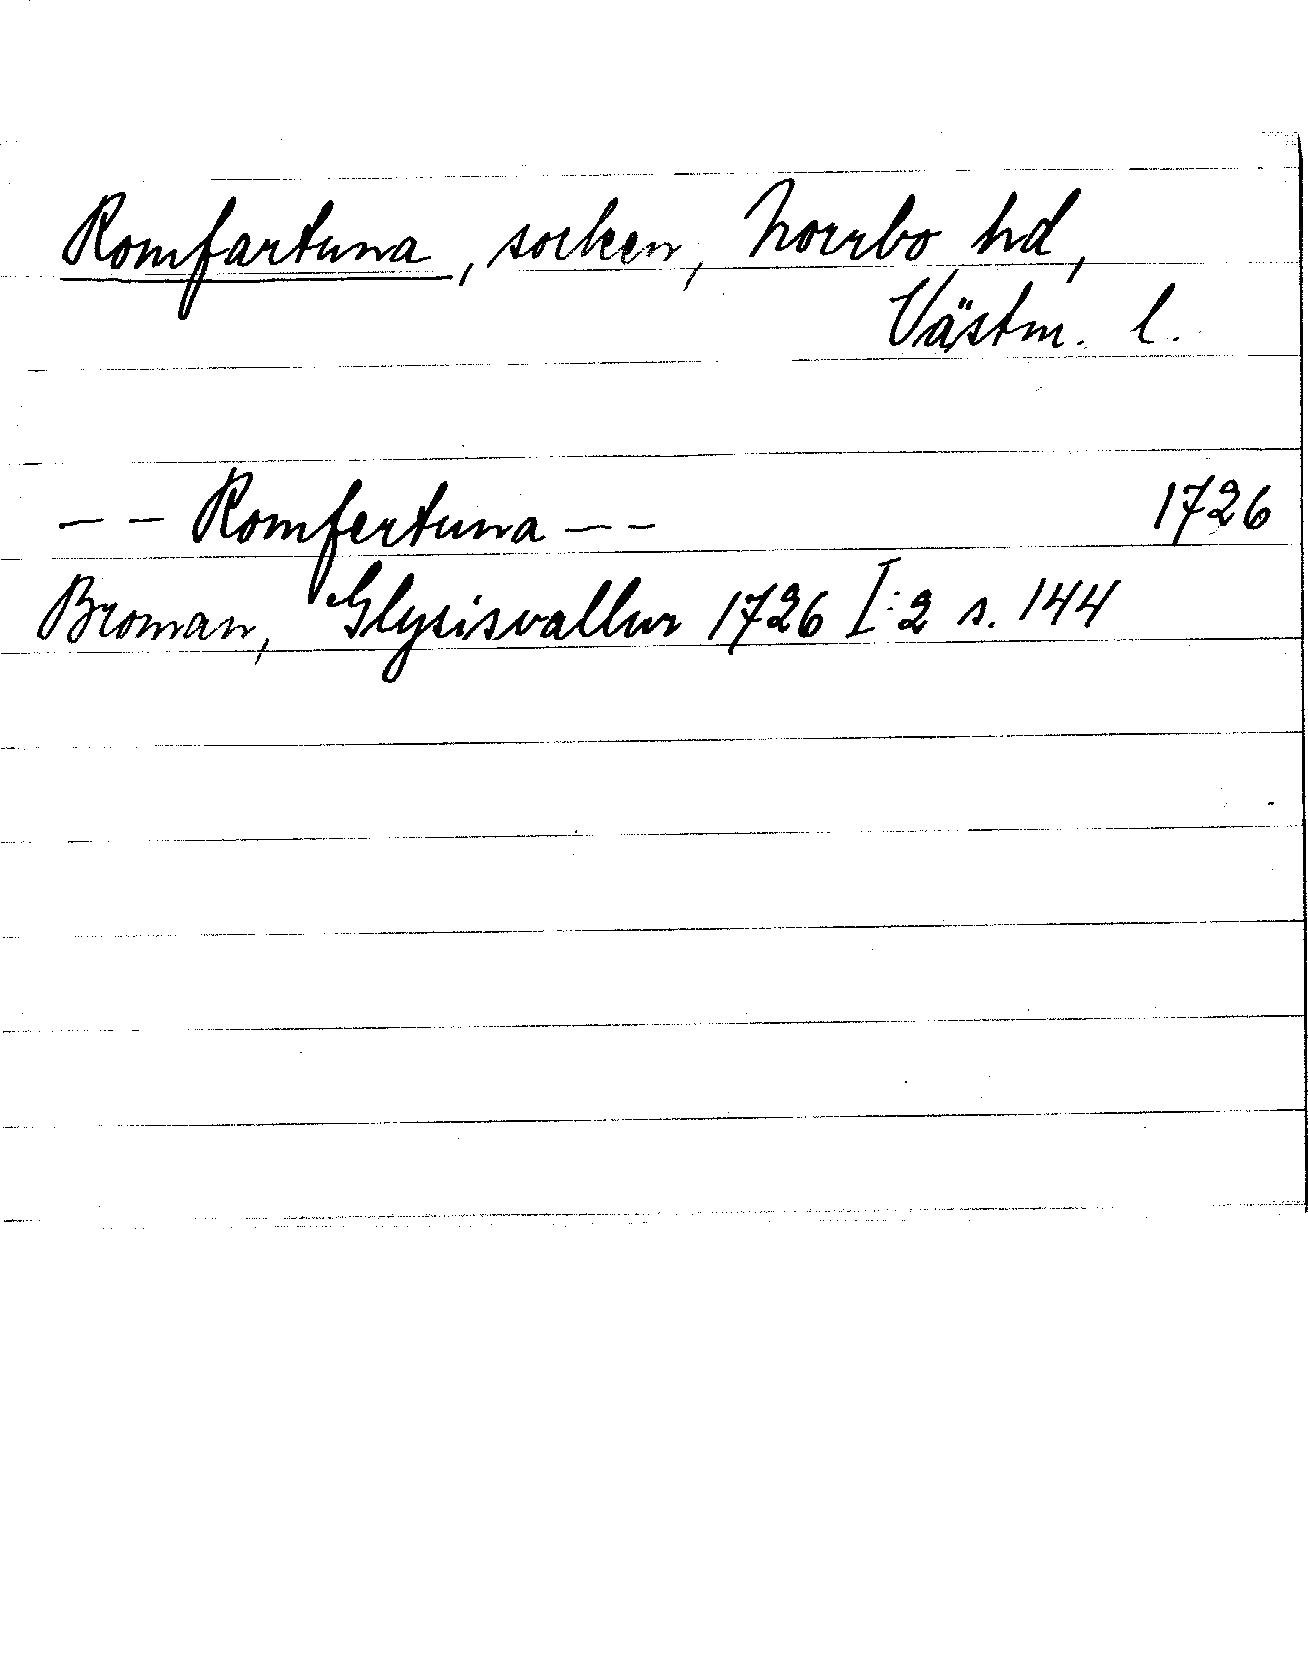 Romfartuna, socken, Norrbo hd,
Västm. l.
-- Romfertuna -- 1726
Broman, Glysisvallur 1726 I:2 s. 144